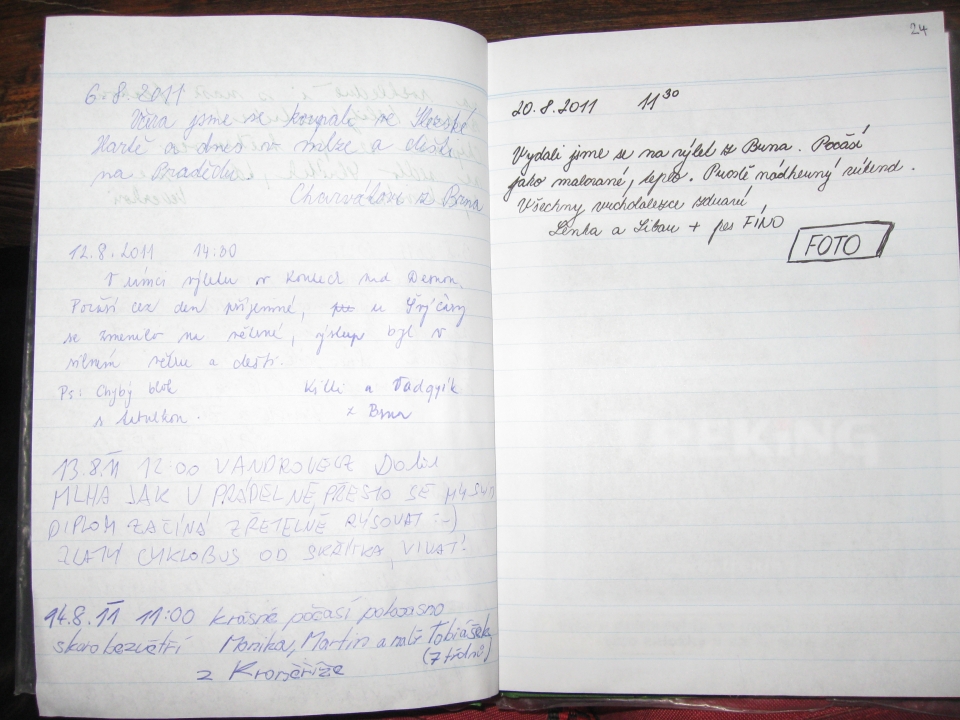 6.8.2011
Včera jsme se koupali ve Slezské
Hartě a dnes v mlze a dešti
na Pradědu.
Charvátovi z Brna
12.8.2011 14:00
V rámci výletu v Koutech nad Desnou.
Počasí cez den příjemné, u Švýcárny
se zmenilo na větrné, výstup byl v
silném větru a dešti.
Ps: Chybý blok
s
Killi a
z Brna
13.8.11 12:00 VANDROVEC Z
MLHA JAK V PRÁDELNĚ, PŘESTO SE MŮJ SUD
DIPLOM ZAČÍNÁ ZŘETELNĚ RÝSOVAT :-)
ZLATÝ CYKLOBUS OD SKŘÍTKA, VIVAT!
14.8.11 11:00 krásné počasí polojasno
skoro bezvětří Monika, Martin a malý Tobiášek
(7 týdnů)
z Kroměříže
24
20.8.2011 11 30
Vydali jsme se na výlet z Brna. Počasí
jako malované, teplo. Prostě nádherný víkend.
Všechny vrchdolezce zdraví
Lenka a Libau + pes FÍNO
FOTO
TREKING